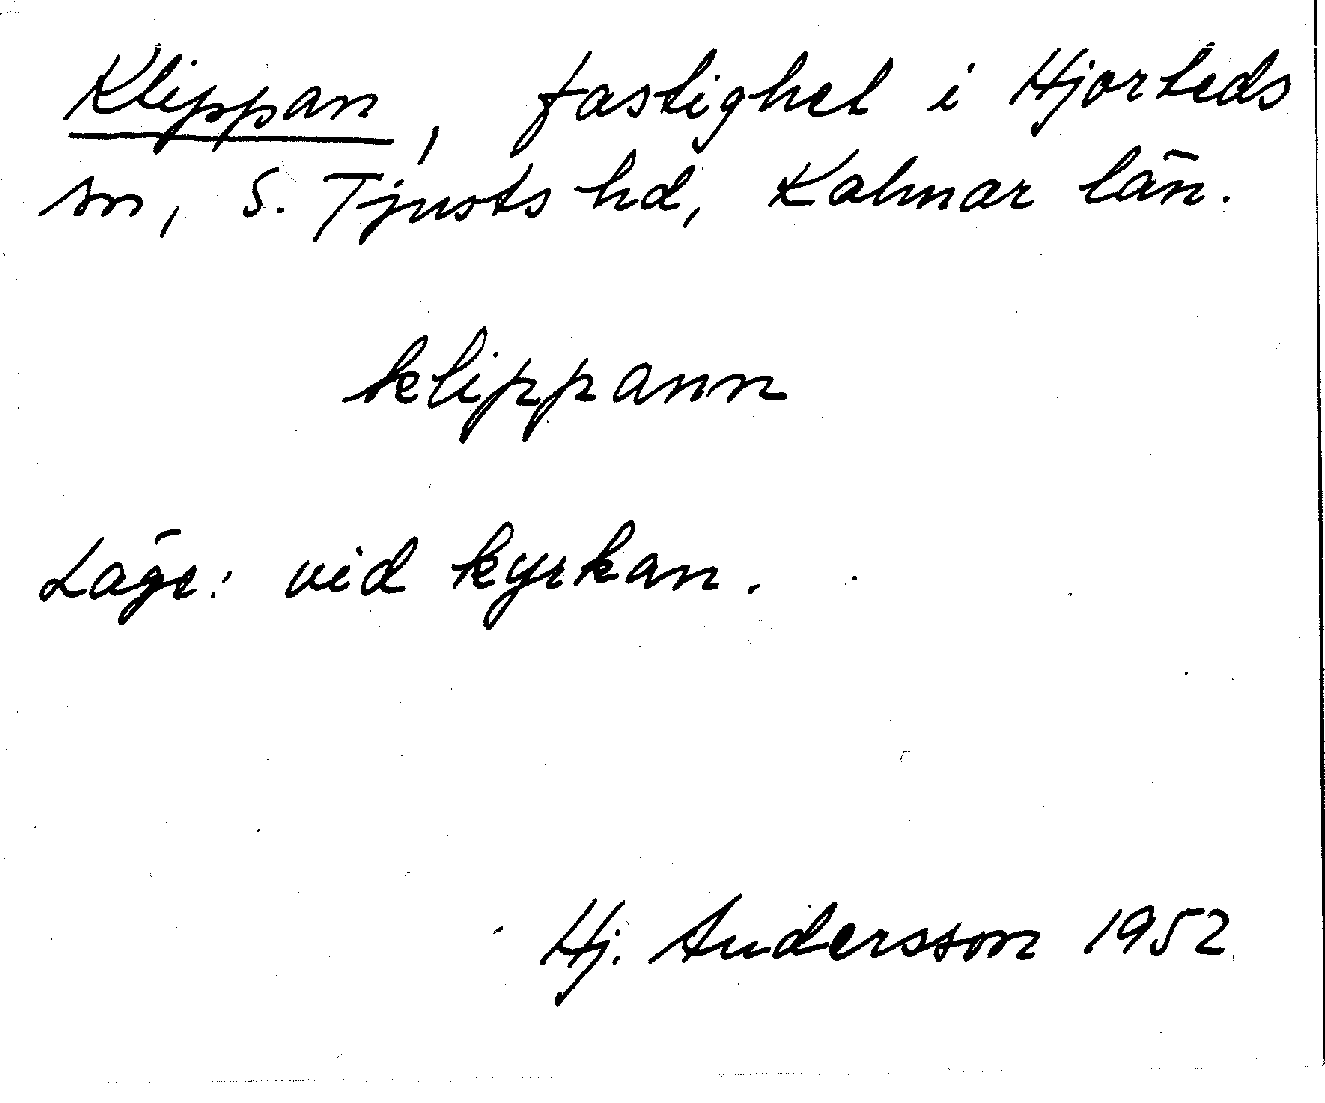 Klippan, fastighet i Hjorteds
sn, S. Tjusts hd, Kalmar län.
klippann
Läge: vid kyrkan.
Hj. Andersson 1952